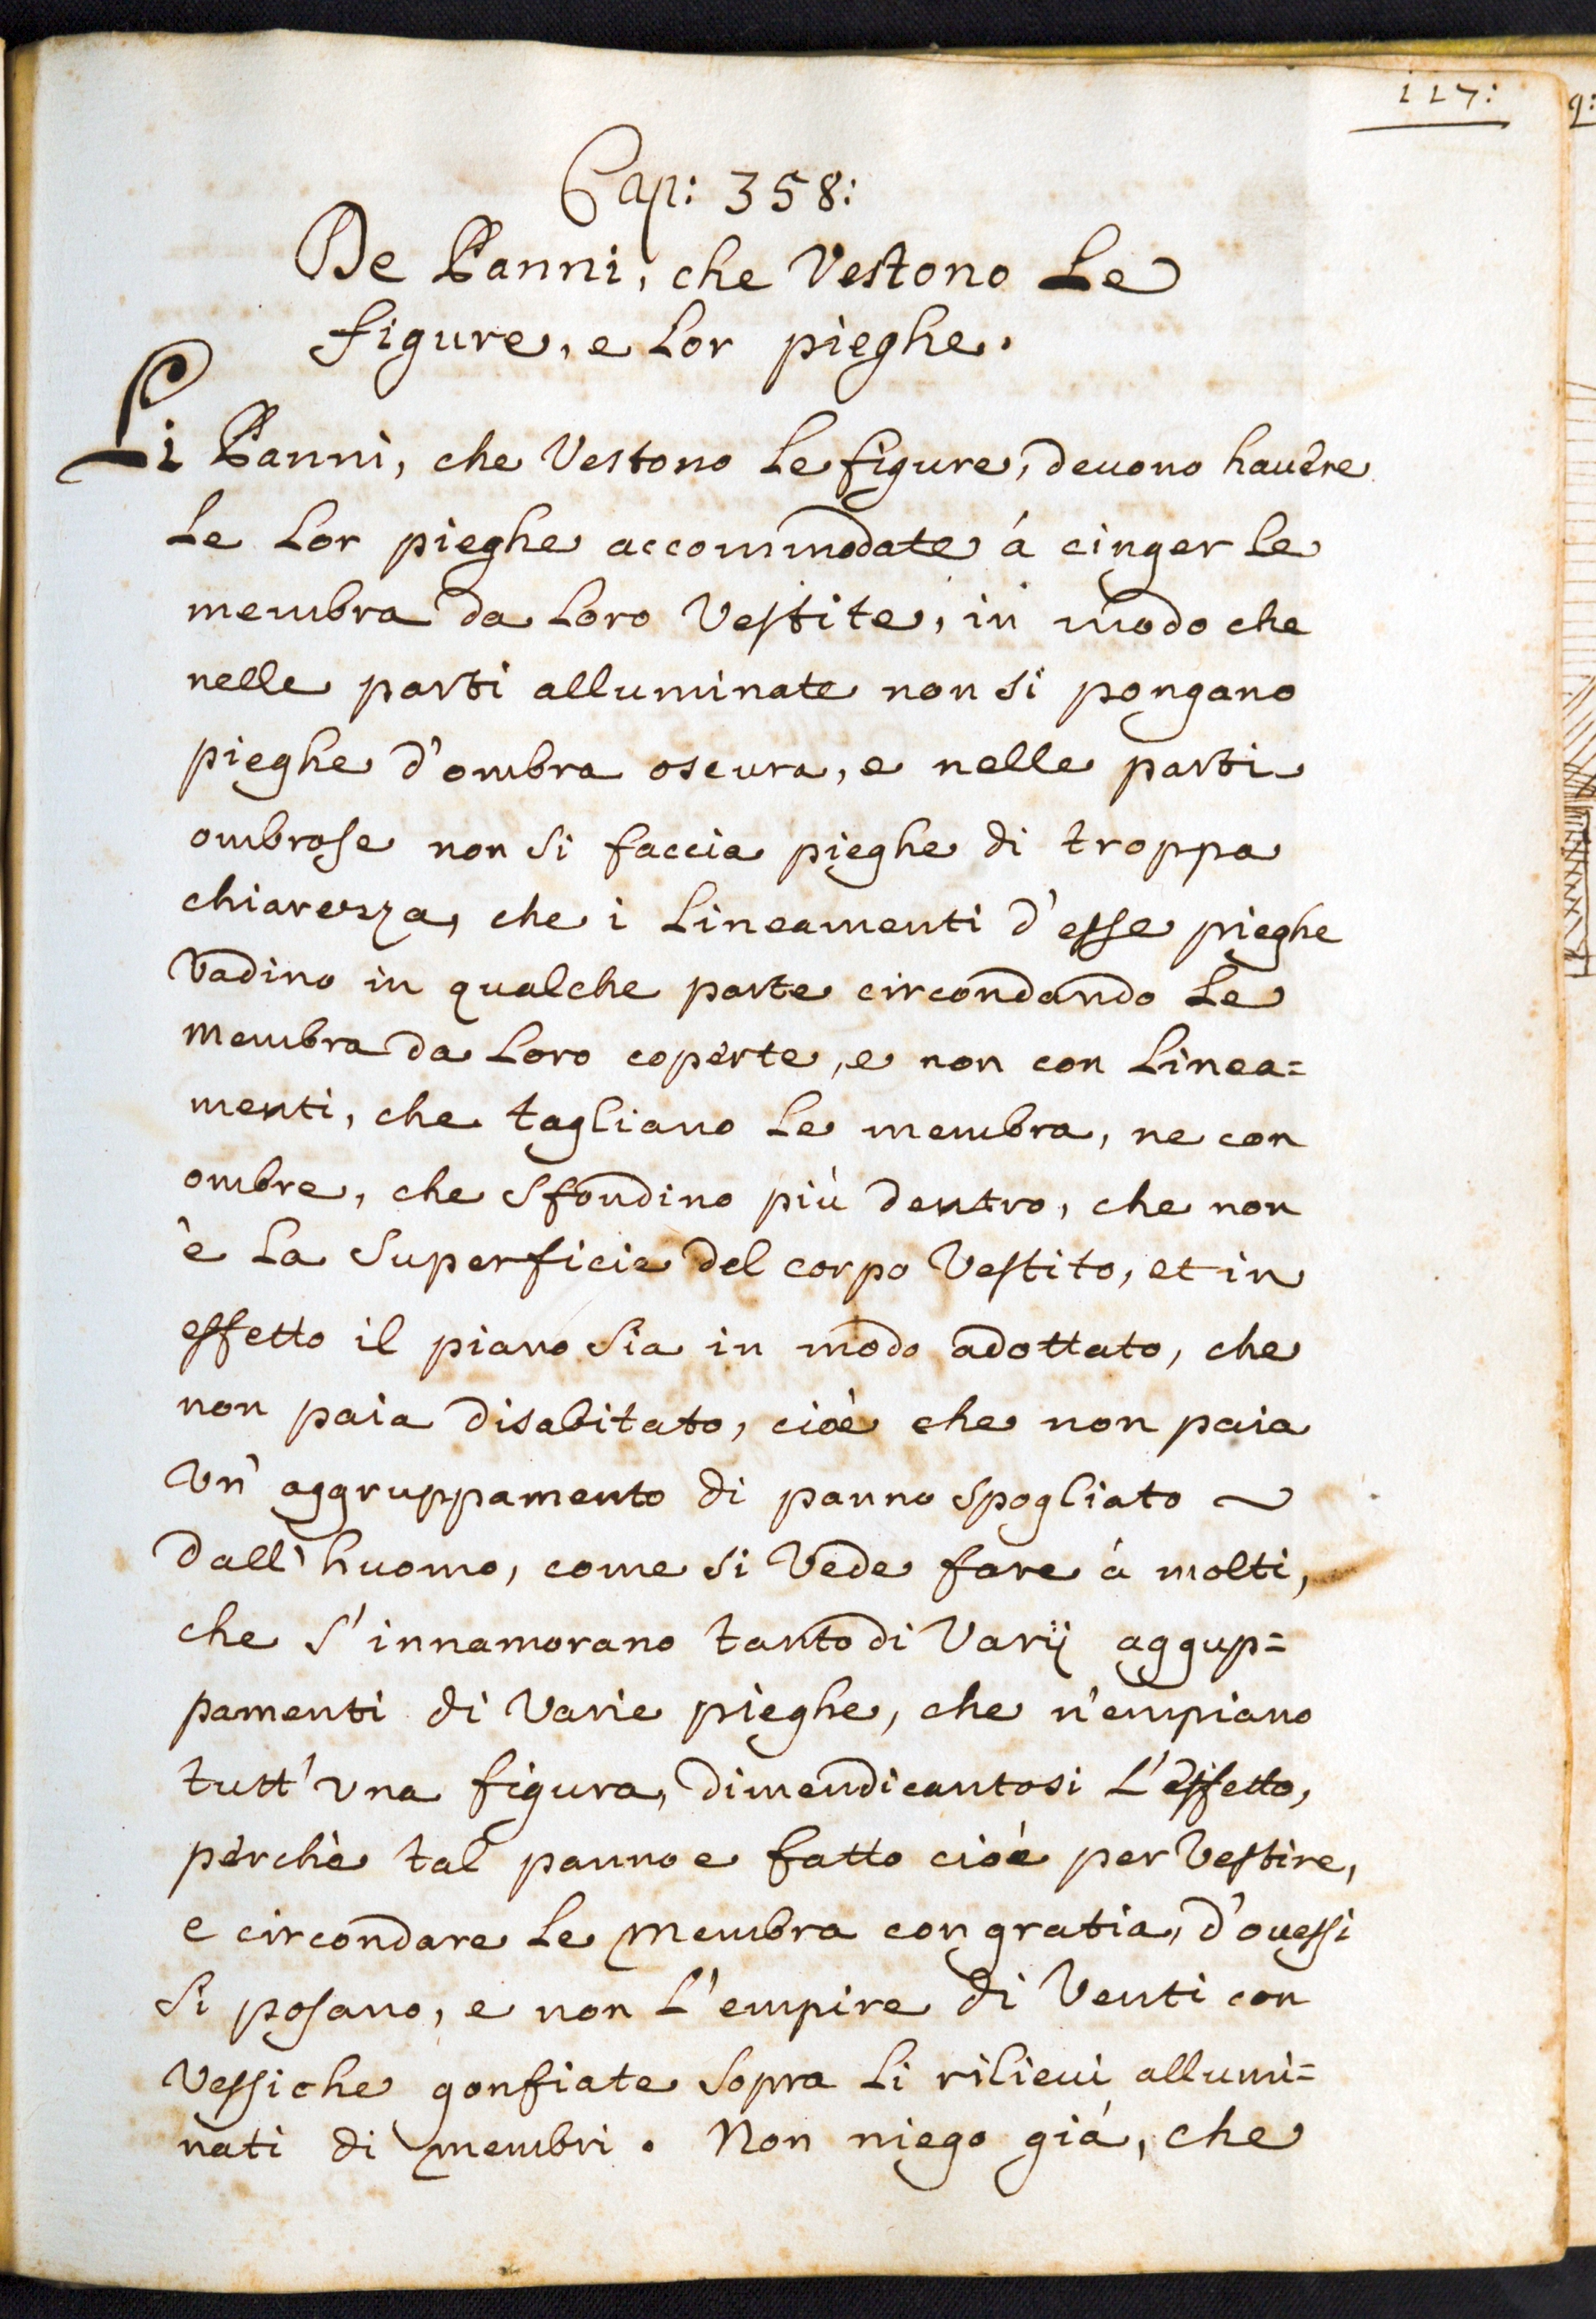 117:
Cap: 358:
De Panni, che Vestono Le
figure, e Lor pieghe.
Li Panni, che Vestono Le figure, deuono hauere
Le Lor pieghe accommodate á cinger le
membra da Loro Vestite, in modo che
nelle parti alluminate non si pongano
pieghe d'ombra oscura, e nelle parti
ombrose non si faccia pieghe di troppa
chiarezza, che i Lineamenti d'esse pieghe
Vadino in qualche parte circondando Le
membra da Loro coperte, e non con Linea=
menti, che tagliano Le membra, ne con
ombre, che sfondino più dentro, che non
è La Superficie del corpo Vestito, et in
effetto il piano sia in modo adottato, che
non paia disabitato, cioè che non paia
Un' aggruppamento di panno spogliato
dall' huomo, come si Vede fare á molti,
che s'innamorano tanto di Varij aggup=
pamenti di Varie pieghe, che n'empiano
tutt' una figura, dimendicantosi L'effetto,
perchè tal panno e fatto cioè per Vestire,
e circondare Le membra con gratia, d'ouessi
si posano, e non L'empire di Venti con
Vessiche gonfiate sopra Li rilieui allumi=
nati di membri. Non niego giá, che